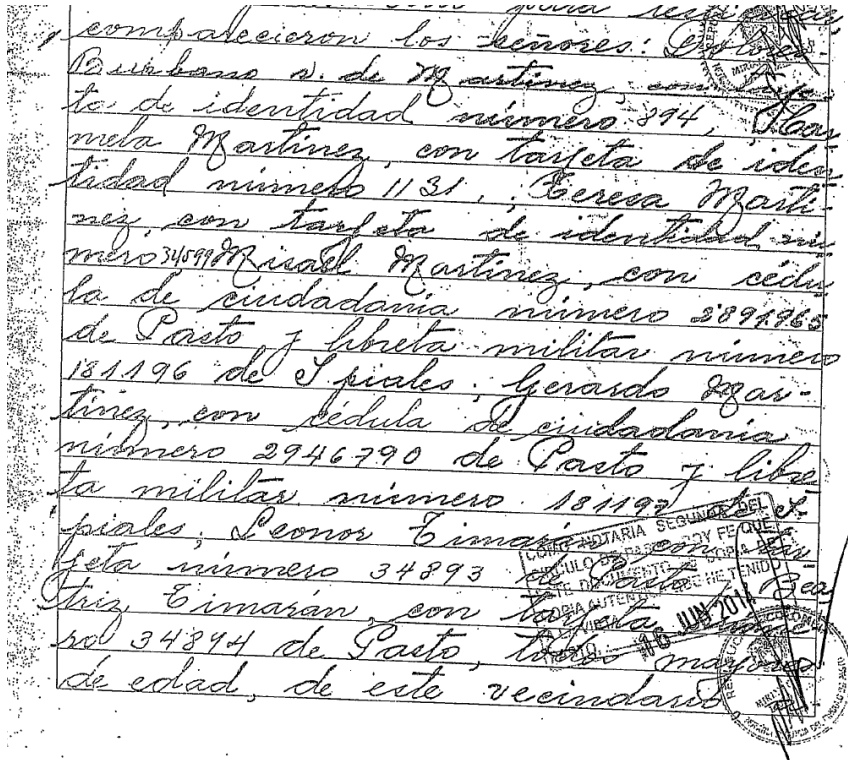 comparecieron los señores: Dolores
Burbano v. de Martinez, con
ta de identidad número 894, Car
mela Martinez, con tarjeta de iden
tidad número 1131, Teresa Marti-
nez, con tarjeta de identidad nú
mero 34599 Misael Martinez, con cédu
la de ciudadania número
de Pasto y libreta militar número
181196 de Ipiales; Gerardo Mar-
tinez, con cédula de ciudadania
número 2946790 de Pasto y libre
ta militar número 181197 de I
piales; Leonor Timarán, con tar
jeta número 34893 de Pasto y Bea
triz Timarán, con tarjeta núme
ro 34894 de Pasto, todos mayores
de edad, de este vecindario
COMO NOTARIA SEGUNDA DEL
CIRCULO DE PASTO DOY FE QUE
ESTE DOCUMENTO ES COPIA
COPIA AUTENTICA QUE HE TENIDO
A LA VISTA
PASTO 16 JUN 2014